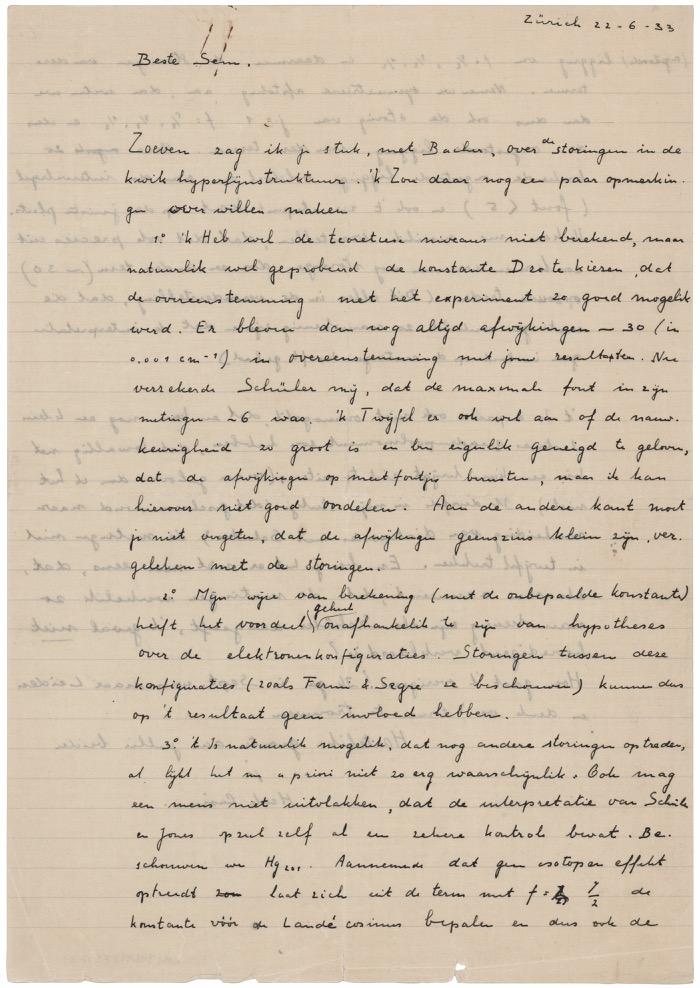 Zürich 22-6-33
Beste Sem.
Zoeven zag ik je stuk, met Bacher, over de storingen in de
kwik hyperfijnstruktuur. 'k Zou daar nog een paar opmerkin-
gen over willen maken
1º 'k Heb wel de teoretiese niveaus niet berekend, maar
natuurlik wel geprobeerd de konstante D zo te kiezen, dat
de overeenstemming met het experiment zo goed mogelik
werd. Er bleven dan nog altijd afwijkingen ~ 30 (in
0.001 cm⁻¹) in overeenstemming met jouw resultaten. Nu
verzekerde Schüler mij, dat de maximale fout in zijn
metingen ~6 was. 'k Twijfel er ook wel aan of de nauw-
keurigheid zo groot is en ben eigenlik geneigd te geloven,
dat de afwijkingen op meetfoutjes berusten, maar ik kan
hierover niet goed oordelen. Aan de andere kant moet
je niet vergeten, dat de afwijkingen geenszins klein zijn, ver-
geleken met de storingen.
2º Mijn wijze van berekening (met de onbepaalde konstante)
heeft het voordeel geheel onafhankelik te zijn van hypotheses
over de elektronenkonfiguraties. Storingen tussen deze
konfiguraties (zoals Fermi & Segre ze beschouwen) kunnen dus
op 't resultaat geen invloed hebben.
3º 't Is natuurlik mogelik, dat nog andere storingen optreden,
al lijkt het me a priori niet zo erg waarschijnlik. Ook mag
een mens niet uitvlakken, dat de interpretatie van Schüler
en Jones opzich zelf al een zekere kontrole bevat. Be-
schouwen we Hg₂₀₁. Aannemende dat geen isotopen effekt
optreedt laat zich uit de term met f = 7/2 de
konstante vóór de Landé cosinus bepalen en dus ook de